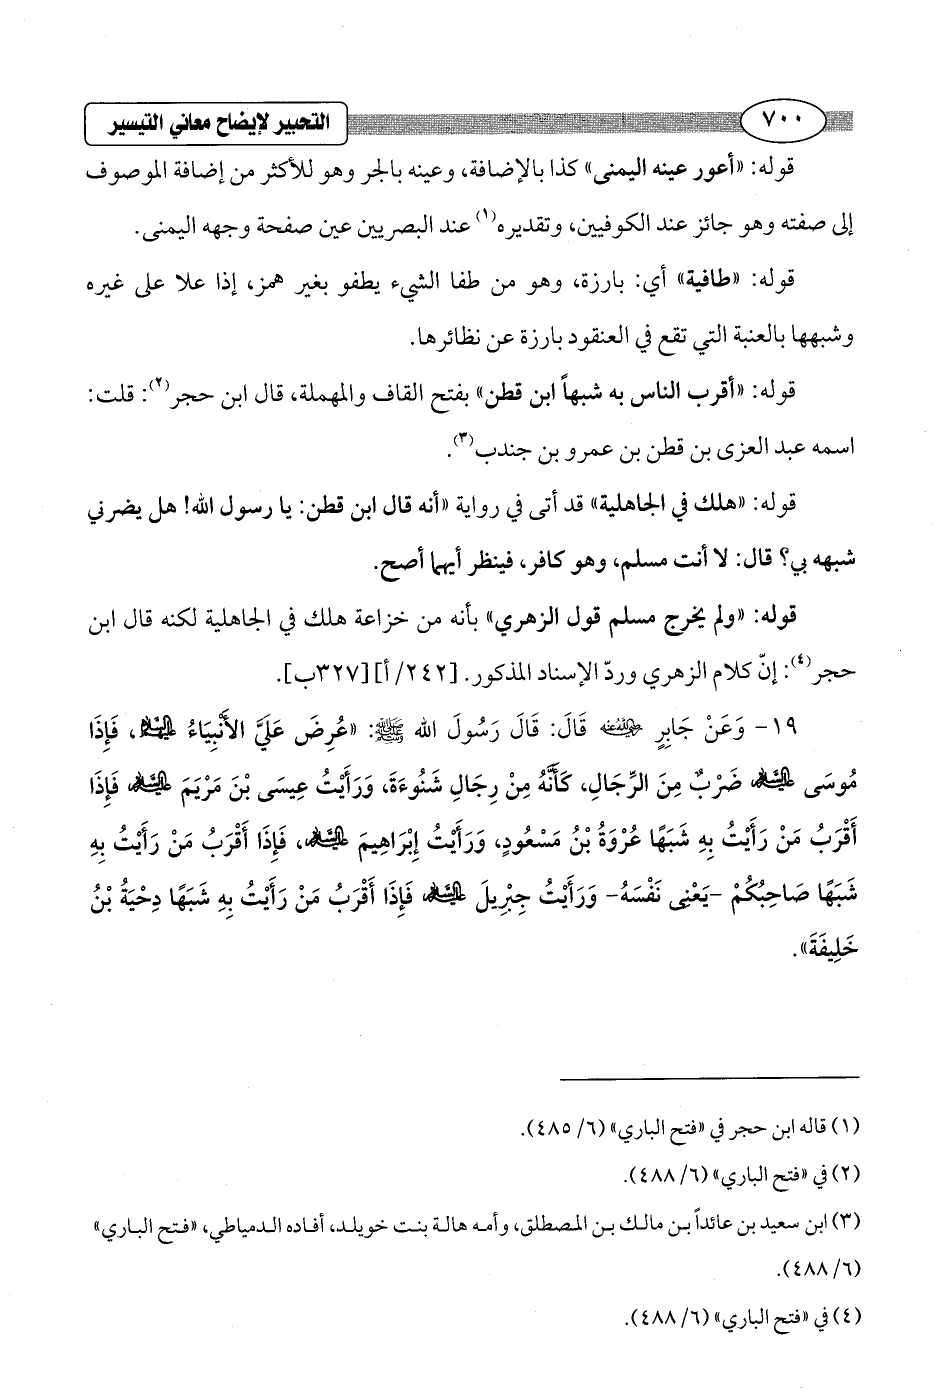 ٧٠٠ التحبير لإيضاح معاني التيسير
قوله: «أعور عينه اليمنى» كذا بالإضافة، وعينه بالجر وهو للأكثر من إضافة الموصوف
إلى صفته وهو جائز عند الكوفيين، وتقديره(١) عند البصريين عين صفحة وجهه اليمنى.
قوله: «طافية» أي: بارزة، وهو من طفا الشيء يطفو بغير همز، إذا علا على غيره
وشبهها بالعنبة التي تقع في العنقود بارزة عن نظائرها.
قوله: «أقرب الناس به شبهاً ابن قطن» بفتح القاف والمهملة، قال ابن حجر(٢): قلت:
اسمه عبد العزى بن قطن بن عمرو بن جندب(٣).
قوله: «هلك في الجاهلية» قد أتى في رواية «أنه قال ابن قطن: يا رسول الله! هل يضرني
شبهه بي؟ قال: لا أنت مسلم، وهو كافر، فينظر أيهما أصح.
قوله: «ولم يخرج مسلم قول الزهري» بأنه من خزاعة هلك في الجاهلية لكنه قال ابن
حجر(٤): إنّ كلام الزهري وردّ الإسناد المذكور. [٢٤٢/ أ] [٣٢٧ب].
١٩- وَعَنْ جَابِرٍ رضي الله عنه قَالَ: قَالَ رَسُولَ الله ﷺ: «عُرِضَ عَلَيَّ الأَنْبِيَاءُ عليهم السلام، فَإِذَا
مُوسَى عليه السلام ضَرْبٌ مِنَ الرِّجَالِ، كَأَنَّهُ مِنْ رِجَالِ شَنُوءَةَ، وَرَأَيْتُ عِيسَى بْنَ مَرْيَمَ عليه السلام فَإِذَا
أَقْرَبُ مَنْ رَأَيْتُ بِهِ شَبَهًا عُرْوَةُ بْنُ مَسْعُودٍ، وَرَأَيْتُ إِبْرَاهِيمَ عليه السلام، فَإِذَا أَقْرَبُ مَنْ رَأَيْتُ بِهِ
شَبَهًا صَاحِبُكُمْ -يَعْنِى نَفْسَهُ- وَرَأَيْتُ جِبْرِيلَ عليه السلام فَإِذَا أَقْرَبُ مَنْ رَأَيْتُ بِهِ شَبَهًا دِحْيَةُ بْنُ
خَلِيفَةَ».
(١) قاله ابن حجر في «فتح الباري» (٦/ ٤٨٥).
(٢) في «فتح الباري» (٦/ ٤٨٨).
(٣) ابن سعيد بن عائداً بن مالك بن المصطلق، وأمه هالة بنت خويلد، أفاده الدمياطي، «فتح الباري»
(٦/ ٤٨٨).
(٤) في «فتح الباري» (٦/ ٤٨٨).